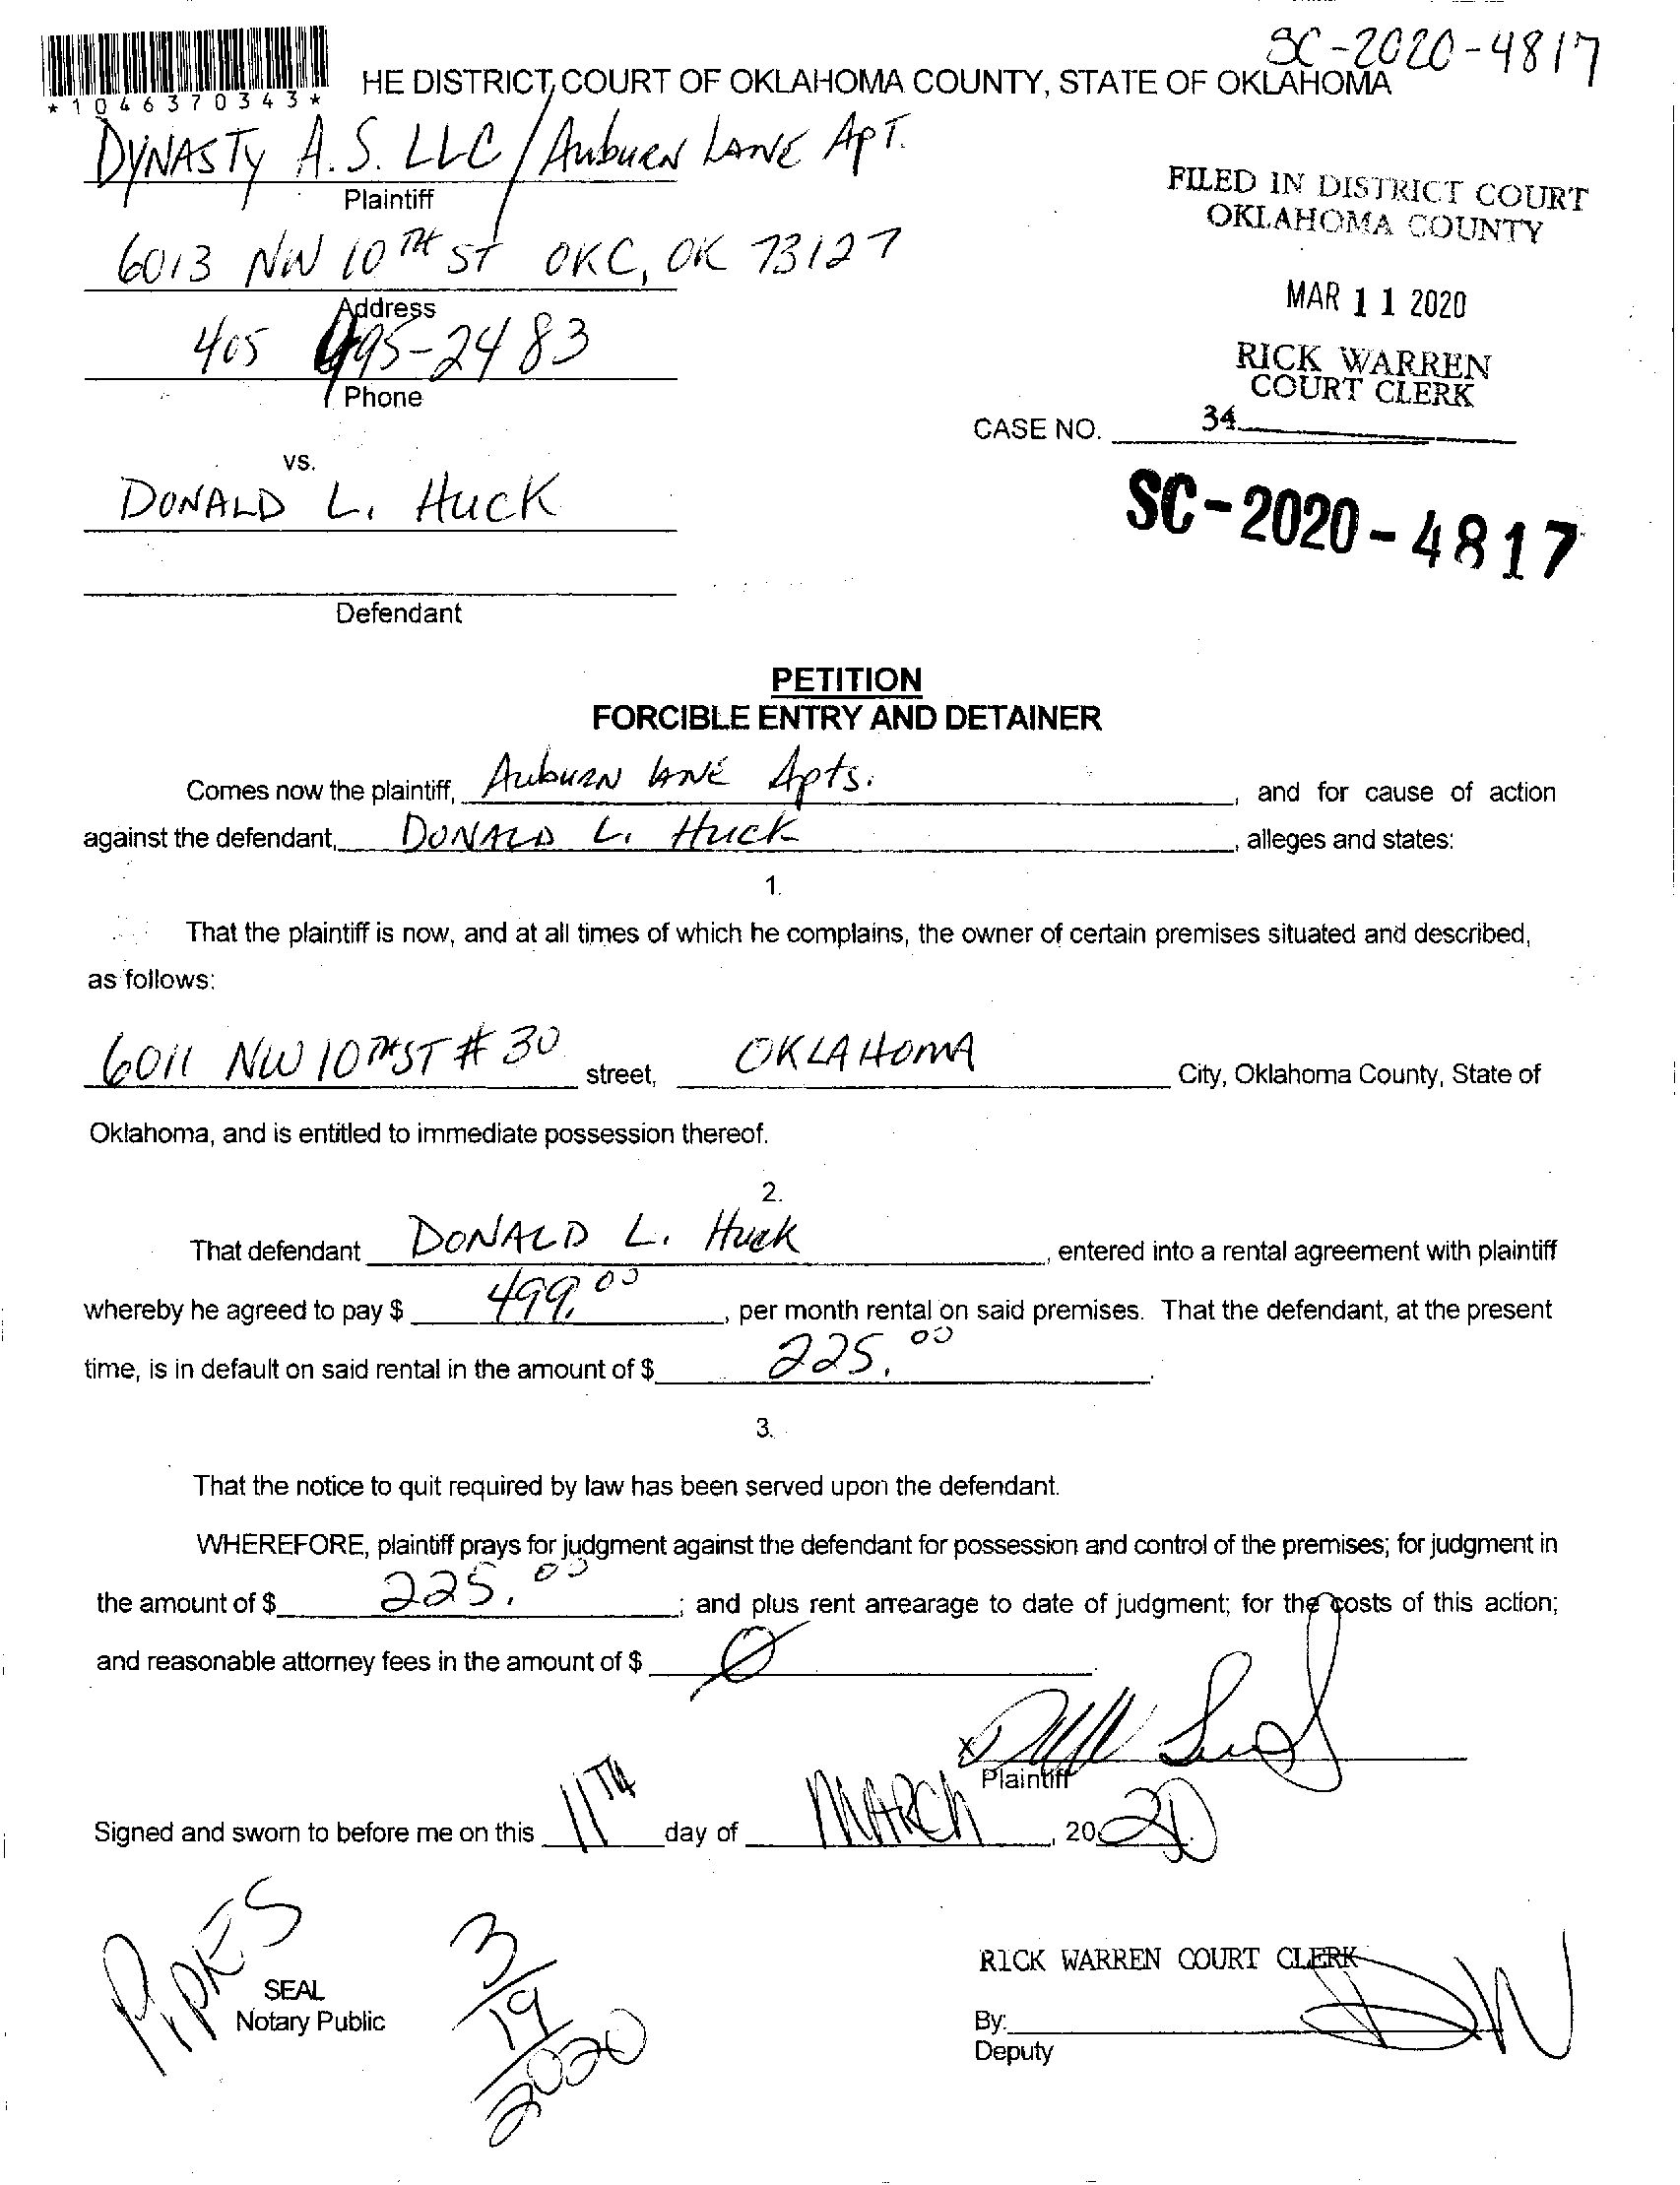 SC-2020-4817
*1046370343*
HE DISTRICT COURT OF OKLAHOMA COUNTY, STATE OF OKLAHOMA
DYNASTY A.S. LLC / AUBURN LANE APT.
Plaintiff
FILED IN DISTRICT COURT
OKLAHOMA COUNTY
6013 NW 10TH ST OKC, OK 73127
Address
MAR 11 2020
405 495-2483
Phone
RICK WARREN
COURT CLERK
34
CASE NO.
vs.
DONALD L. HUCK
SC-2020-4817
Defendant
PETITION
FORCIBLE ENTRY AND DETAINER
Comes now the plaintiff, AUBURN LANE Apts. , and for cause of action
against the defendant, DONALD L. HUCK , alleges and states:
1.
That the plaintiff is now, and at all times of which he complains, the owner of certain premises situated and described,
as follows:
6011 NW 10TH ST # 30 street, OKLAHOMA City, Oklahoma County, State of
Oklahoma, and is entitled to immediate possession thereof.
2.
That defendant DONALD L. HUCK , entered into a rental agreement with plaintiff
whereby he agreed to pay $ 499.00 , per month rental on said premises. That the defendant, at the present
time, is in default on said rental in the amount of $ 225.00 .
3.
That the notice to quit required by law has been served upon the defendant.
WHEREFORE, plaintiff prays for judgment against the defendant for possession and control of the premises; for judgment in
the amount of $ 225.00 ; and plus rent arrearage to date of judgment; for the costs of this action;
and reasonable attorney fees in the amount of $ 0 .
X
Plaintiff
Signed and sworn to before me on this 11TH day of MARCH , 2020.
PIPKES
3/19/2020
SEAL
Notary Public
RICK WARREN COURT CLERK
By: DW
Deputy